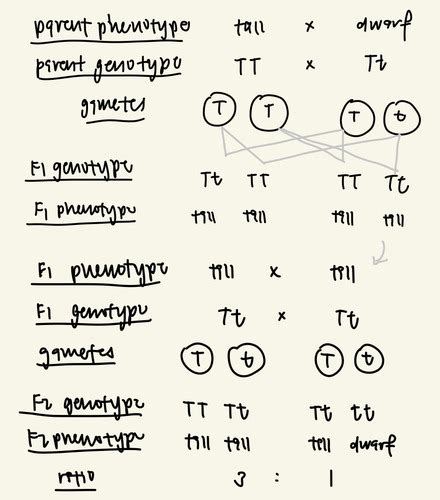 parent phenotype tall x dwarf
parent genotype TT x Tt
gametes T T T t
F1 genotype Tt TT TT Tt
F1 phenotype tall tall tall tall
F1 phenotype tall x tall
F1 genotype Tt x Tt
gametes T t T t
F2 genotype TT Tt Tt tt
F2 phenotype tall tall tall dwarf
ratio 3 : 1